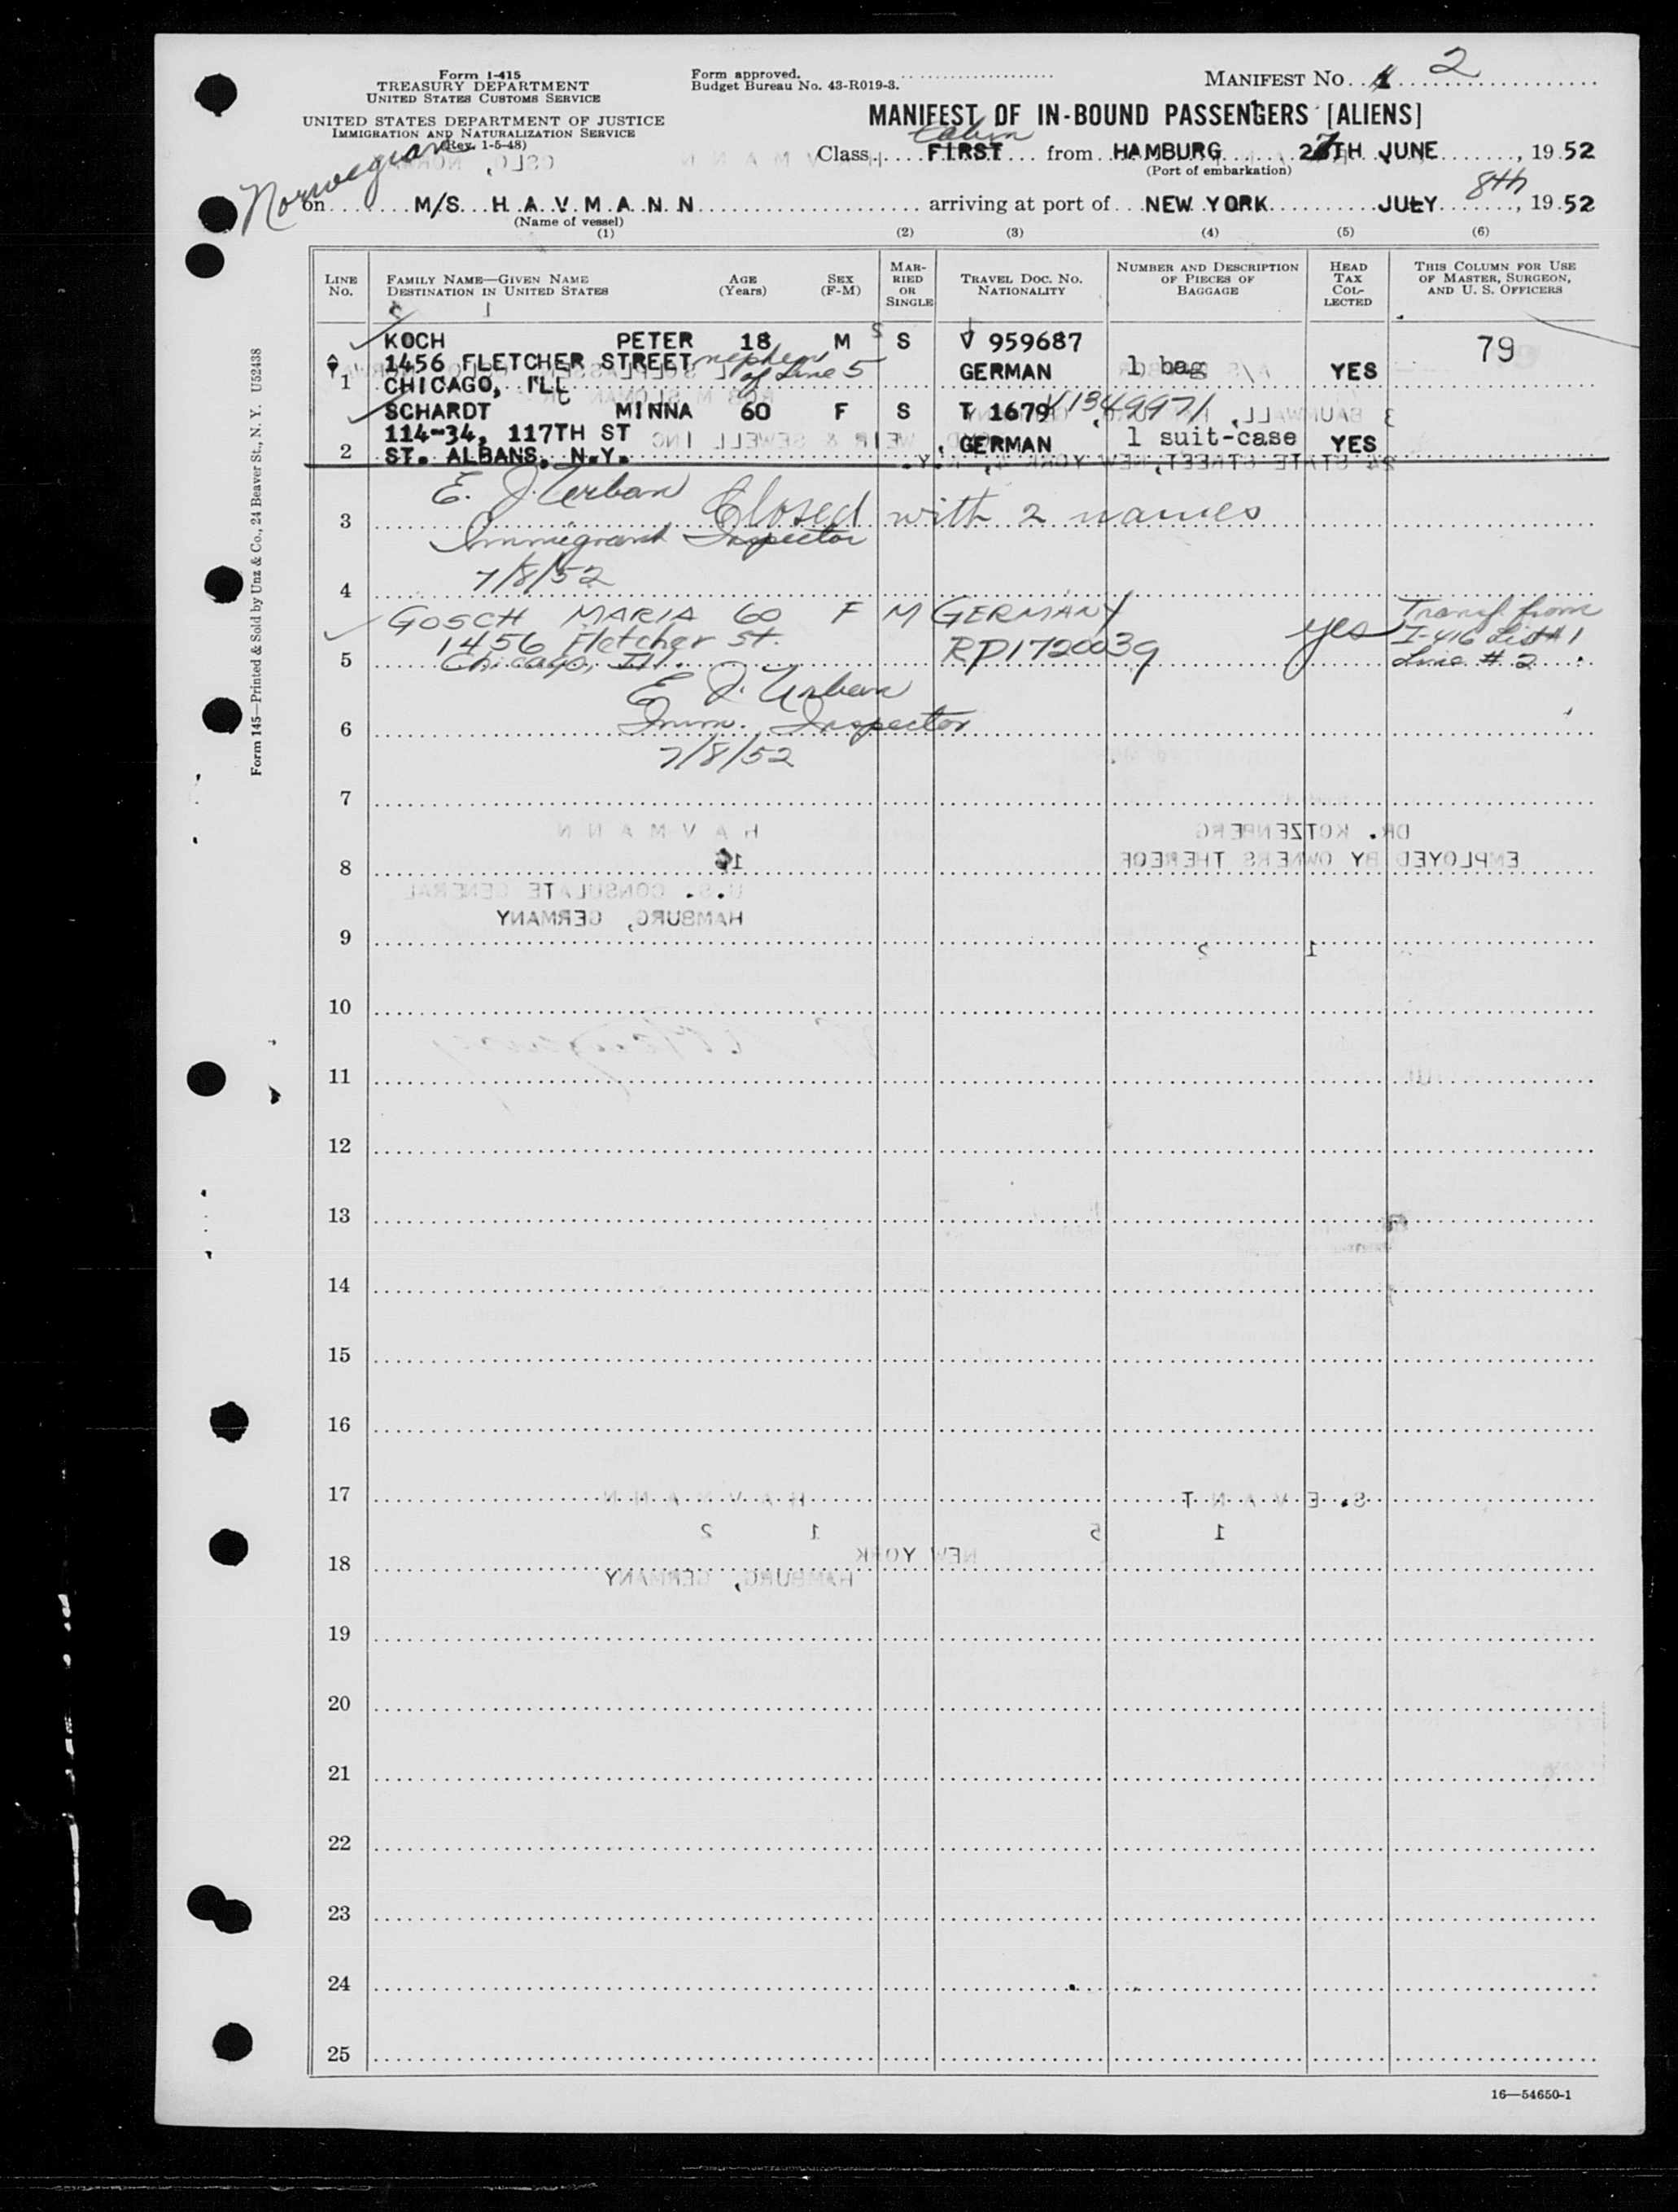 Form I-415
TREASURY DEPARTMENT
UNITED STATES CUSTOMS SERVICE
UNITED STATES DEPARTMENT OF JUSTICE
IMMIGRATION AND NATURALIZATION SERVICE
(Rev. 1-5-48)
Form approved.
Budget Bureau No. 43-R019-3.
MANIFEST NO. 2
MANIFEST OF IN-BOUND PASSENGERS [ALIENS]
Cabin
Class FIRST from HAMBURG 27TH JUNE, 1952
(Port of embarkation)
Norwegian
on M/S. H A V M A N N arriving at port of NEW YORK JULY 8th, 1952
(Name of vessel)
(1) (2) (3) (4) (5) (6)
LINE NO.
FAMILY NAME—GIVEN NAME DESTINATION IN UNITED STATES
AGE (Years)
SEX (F-M)
MARRIED OR SINGLE
TRAVEL DOC. NO. NATIONALITY
NUMBER AND DESCRIPTION OF PIECES OF BAGGAGE
HEAD TAX COLLECTED
THIS COLUMN FOR USE OF MASTER, SURGEON, AND U. S. OFFICERS
KOCH PETER 18 M S V 959687 79
1456 FLETCHER STREET nephew of Line 5 GERMAN 1 bag YES
1 CHICAGO, ILL
SCHARDT MINNA 60 F S T 1679 V1349971
114-34, 117TH ST GERMAN 1 suit-case YES
2 ST. ALBANS, N.Y.
E. J. Urban
3 Closed with 2 names
Immigrant Inspector
7/8/52
4
GOSCH MARIA 60 F M GERMANY yes Transf. from
1456 Fletcher St. RP1720039 I-416 List #1
5 Chicago, Ill. Line # 2
E J. Urban
6 Imm. Inspector
7/8/52
7
HAVMANN DR. KOTZENBERG
EMPLOYED BY OWNERS THEREOF
8
U.S. CONSULATE GENERAL
HAMBURG, GERMANY
9
1 2
10
11
12
13
14
15
16
17 HAVMANN S. EVANT
1 2 1 5
NEW YORK
18
HAMBURG, GERMANY
19
20
21
22
23
24
25
16—54650-1
Form 145—Printed & Sold by Unz & Co., 24 Beaver St., N. Y. U52438